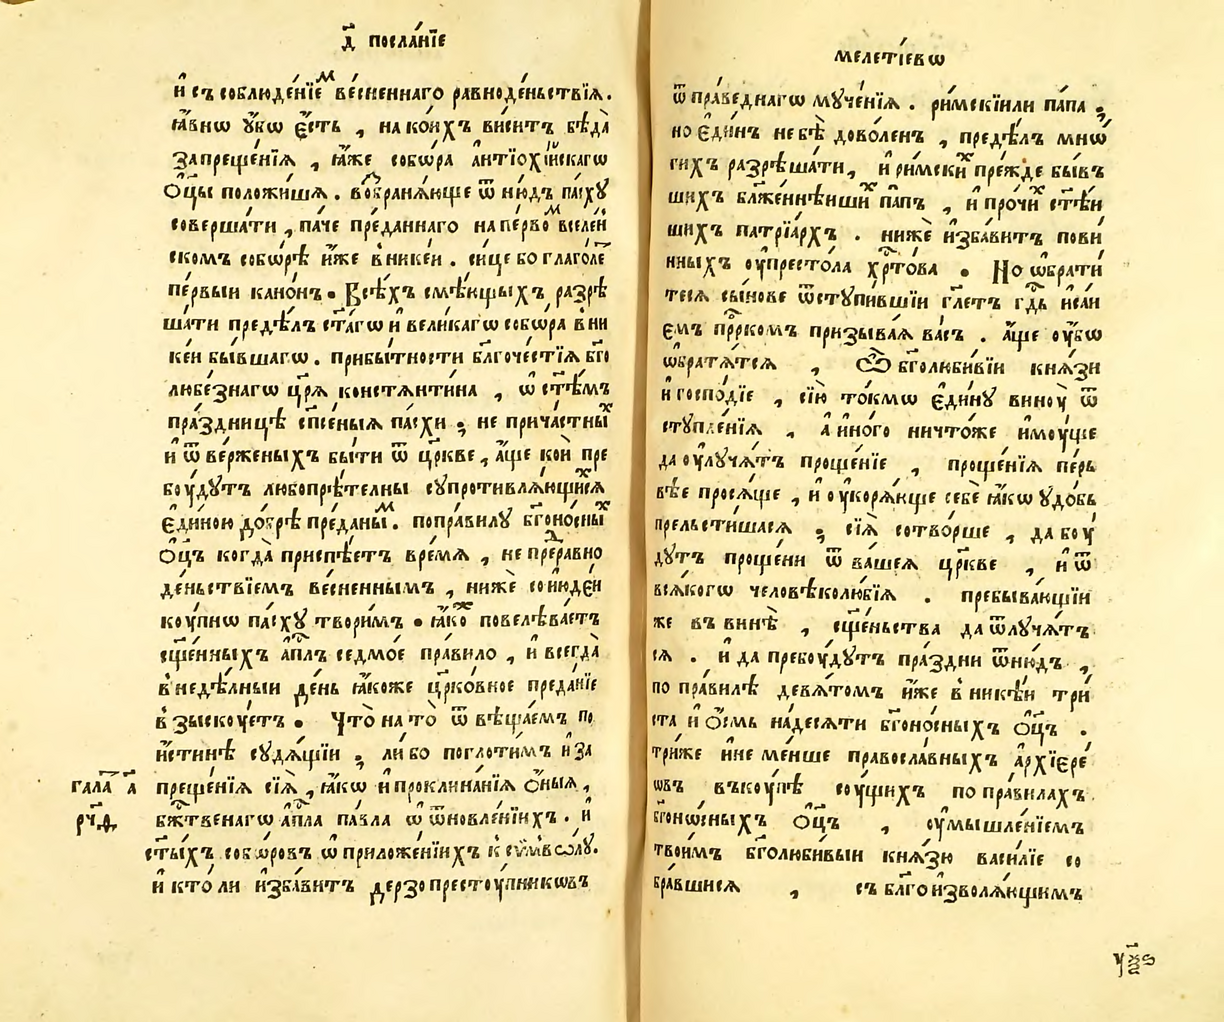 д҃ посла́нїе
и҆ съ соблюде́нїеⷨ ве́сненнаго равноде́ньствїѧ.
ꙗ҆́внѡ ᲂу҆́бѡ є҆́сть , на кои́хъ виси́тъ бѣда̀
запреще́нїѧ , ꙗ҆́же собѡ́ра а҆нтїохі́йскагѡ
ѻ҆тцы̀ положи́шѧ. воⷥбранѧ́юще ѿ ню́дъ па́сху
соверша́ти , па́че пре́даннаго на пе́рвоⷨ вселе́н
скомъ собѡ́рѣ и҆́же в̾ нике́и . си́це бо глаго́леⷮ
пе́рвыи кано́нъ. Всѣ́хъ смѣ́ющыхъ разрѣ
ша́ти предѣ́лъ ст҃а́гѡ и҆ вели́кагѡ собѡ́ра в̾ ни
ке́и бы́вшагѡ . прибы́тности бл҃гоче́стїѧ бг҃о
любе́знагѡ цр҃ѧ̀ констѧнти́на , ѡ҆ ст҃ѣ́мъ
пра́здницѣ сп҃се́ныѧ па́схи ; не прича́стныⷯ
и҆ ѿве́рженыхъ бы́ти ѿ цр҃кве , а҆́ще кои̑ пре
бу́дутъ любопрѣ́телны супротивлѧ́ющиⷯсѧ
є҆ди́ною до́брѣ пре́даныⷨ. по пра́вилу бг҃оно́сныⷯ
Ѻ҆ц҃ъ когда̀ приспѣ́етъ вре́мѧ , не преⷤравно
де́ньствїемъ ве́сненнымъ , нижѐ со и҆юдєи
ку́пнѡ па́сху твори́мъ . ꙗ҆́коⷤ повелѣва́етъ
сщ҃е́нныхъ а҆пⷭ҇лъ седмо́е пра́вило , и҆ всегда̀
в̾ недѣ́лныи де́нь ꙗ҆́коже цр҃ко́вное преда́нїе
взыску́етъ . Что̀ на то̀ ѿвѣща́емъ по
и҆́стинѣ судѧ́щїи ; ли́бо поглоти́мъ и҆ за
преще́нїѧ сїѧ̀ , ꙗ҆́кѡ и҆ проклина́нїѧ ѻ҆́ныѧ ,
гала̑ⷮ а҃
рч҃д
бж҃твенагѡ а҆пⷭ҇ла па́вла ѡ҆ ѿновле́нїихъ . и҆
ст҃ы́хъ собѡ́ровъ ѡ҆ приложе́нїихъ к̾ сѵ́мвѡлу.
и҆ кто́ ли и҆зба́витъ дерзопресту́пникѡвъ
меле́тїевѡ
ѿ пра́веднагѡ муче́нїѧ . ри́мскїи ли па́па ;
но є҆ди́нъ не бѣ̀ дово́ленъ , предѣ́лъ мнѡ́
гихъ разрѣша́ти , и҆ ри́мскиⷯ пре́жде бы́въ
шихъ бл҃же́ннѣишиⷯ па́пъ , и҆ про́чиⷯ ст҃ѣ́и
шихъ патрїа́рхъ . нижѐ и҆зба́витъ пови́
нныхъ у҆ престо́ла хрⷭ҇то́ва . Но ѡ҆брати́
тесѧ сы́нове ѿступи́вшїи гл҃етъ гд҇ь и҆са́и
емъ прⷪ҇ркомъ призыва́ѧ ва́съ . а҆́ще ᲂу҆́бѡ
ѡ҆братѧ́тсѧ , Ѽ бг҃олюби́вїи кнѧ́зи
и҆ госпо́дїе , сїю̀ то́кмѡ є҆ди́ну вину̀ ѿ
ступле́нїѧ , а҆ и҆но́го ничто́же и҆му́ще
да ᲂу҆луча́тъ проще́нїе , проще́нїѧ пе́рь
вѣе просѧ́ще , и҆ ᲂу҆корѧ́юще себѐ ꙗ҆́кѡ удо́бь
прельсти́шасѧ ; сїѧ̀ сотво́рше , да бу́
дутъ проще́ни ѿ ва́шеѧ цр҃кве , и҆ ѿ
всѧ́когѡ человѣколю́бїѧ . пребыва́ющїи
же въ винѣ̀ , сщ҃е́ньства да ѿлуча́тъ
сѧ . и҆ да пребу́дутъ пра́здни ѿню́дъ ,
по пра́вилѣ девѧ́томъ и҆́же в̾ нике́и три́
ста и҆ ѻ҆́смь на́десѧти бг҃оно́сныхъ ѻ҆ц҃ъ .
три́же и҆ не ме́нше правосла́вныхъ а҆рхїере́
ѡвъ вку́пѣ су́щихъ по пра́вилахъ
бг҃онѡ́сныхъ Ѻ҆ц҃ъ , ᲂу҆мышле́нїемъ
твои́мъ бг҃олюби́выи кнѧ́зю васи́лїе со
бра́вшисѧ , съ бл҃гоизволѧ́ющимъ